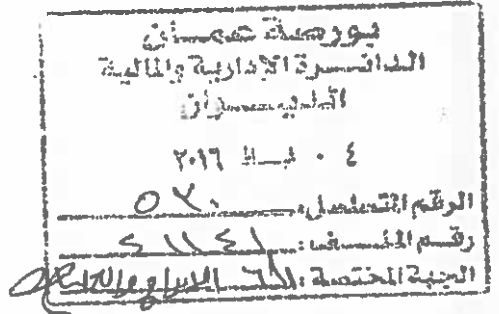 بورصة عمان
الدائرة الإدارية والمالية
الديوان
٠٤ شباط ٢٠١٦
الرقم المتسلسل: ٥٢٠
رقم الملف: ٤١١٤١
الجهة المختصة: الإدراج